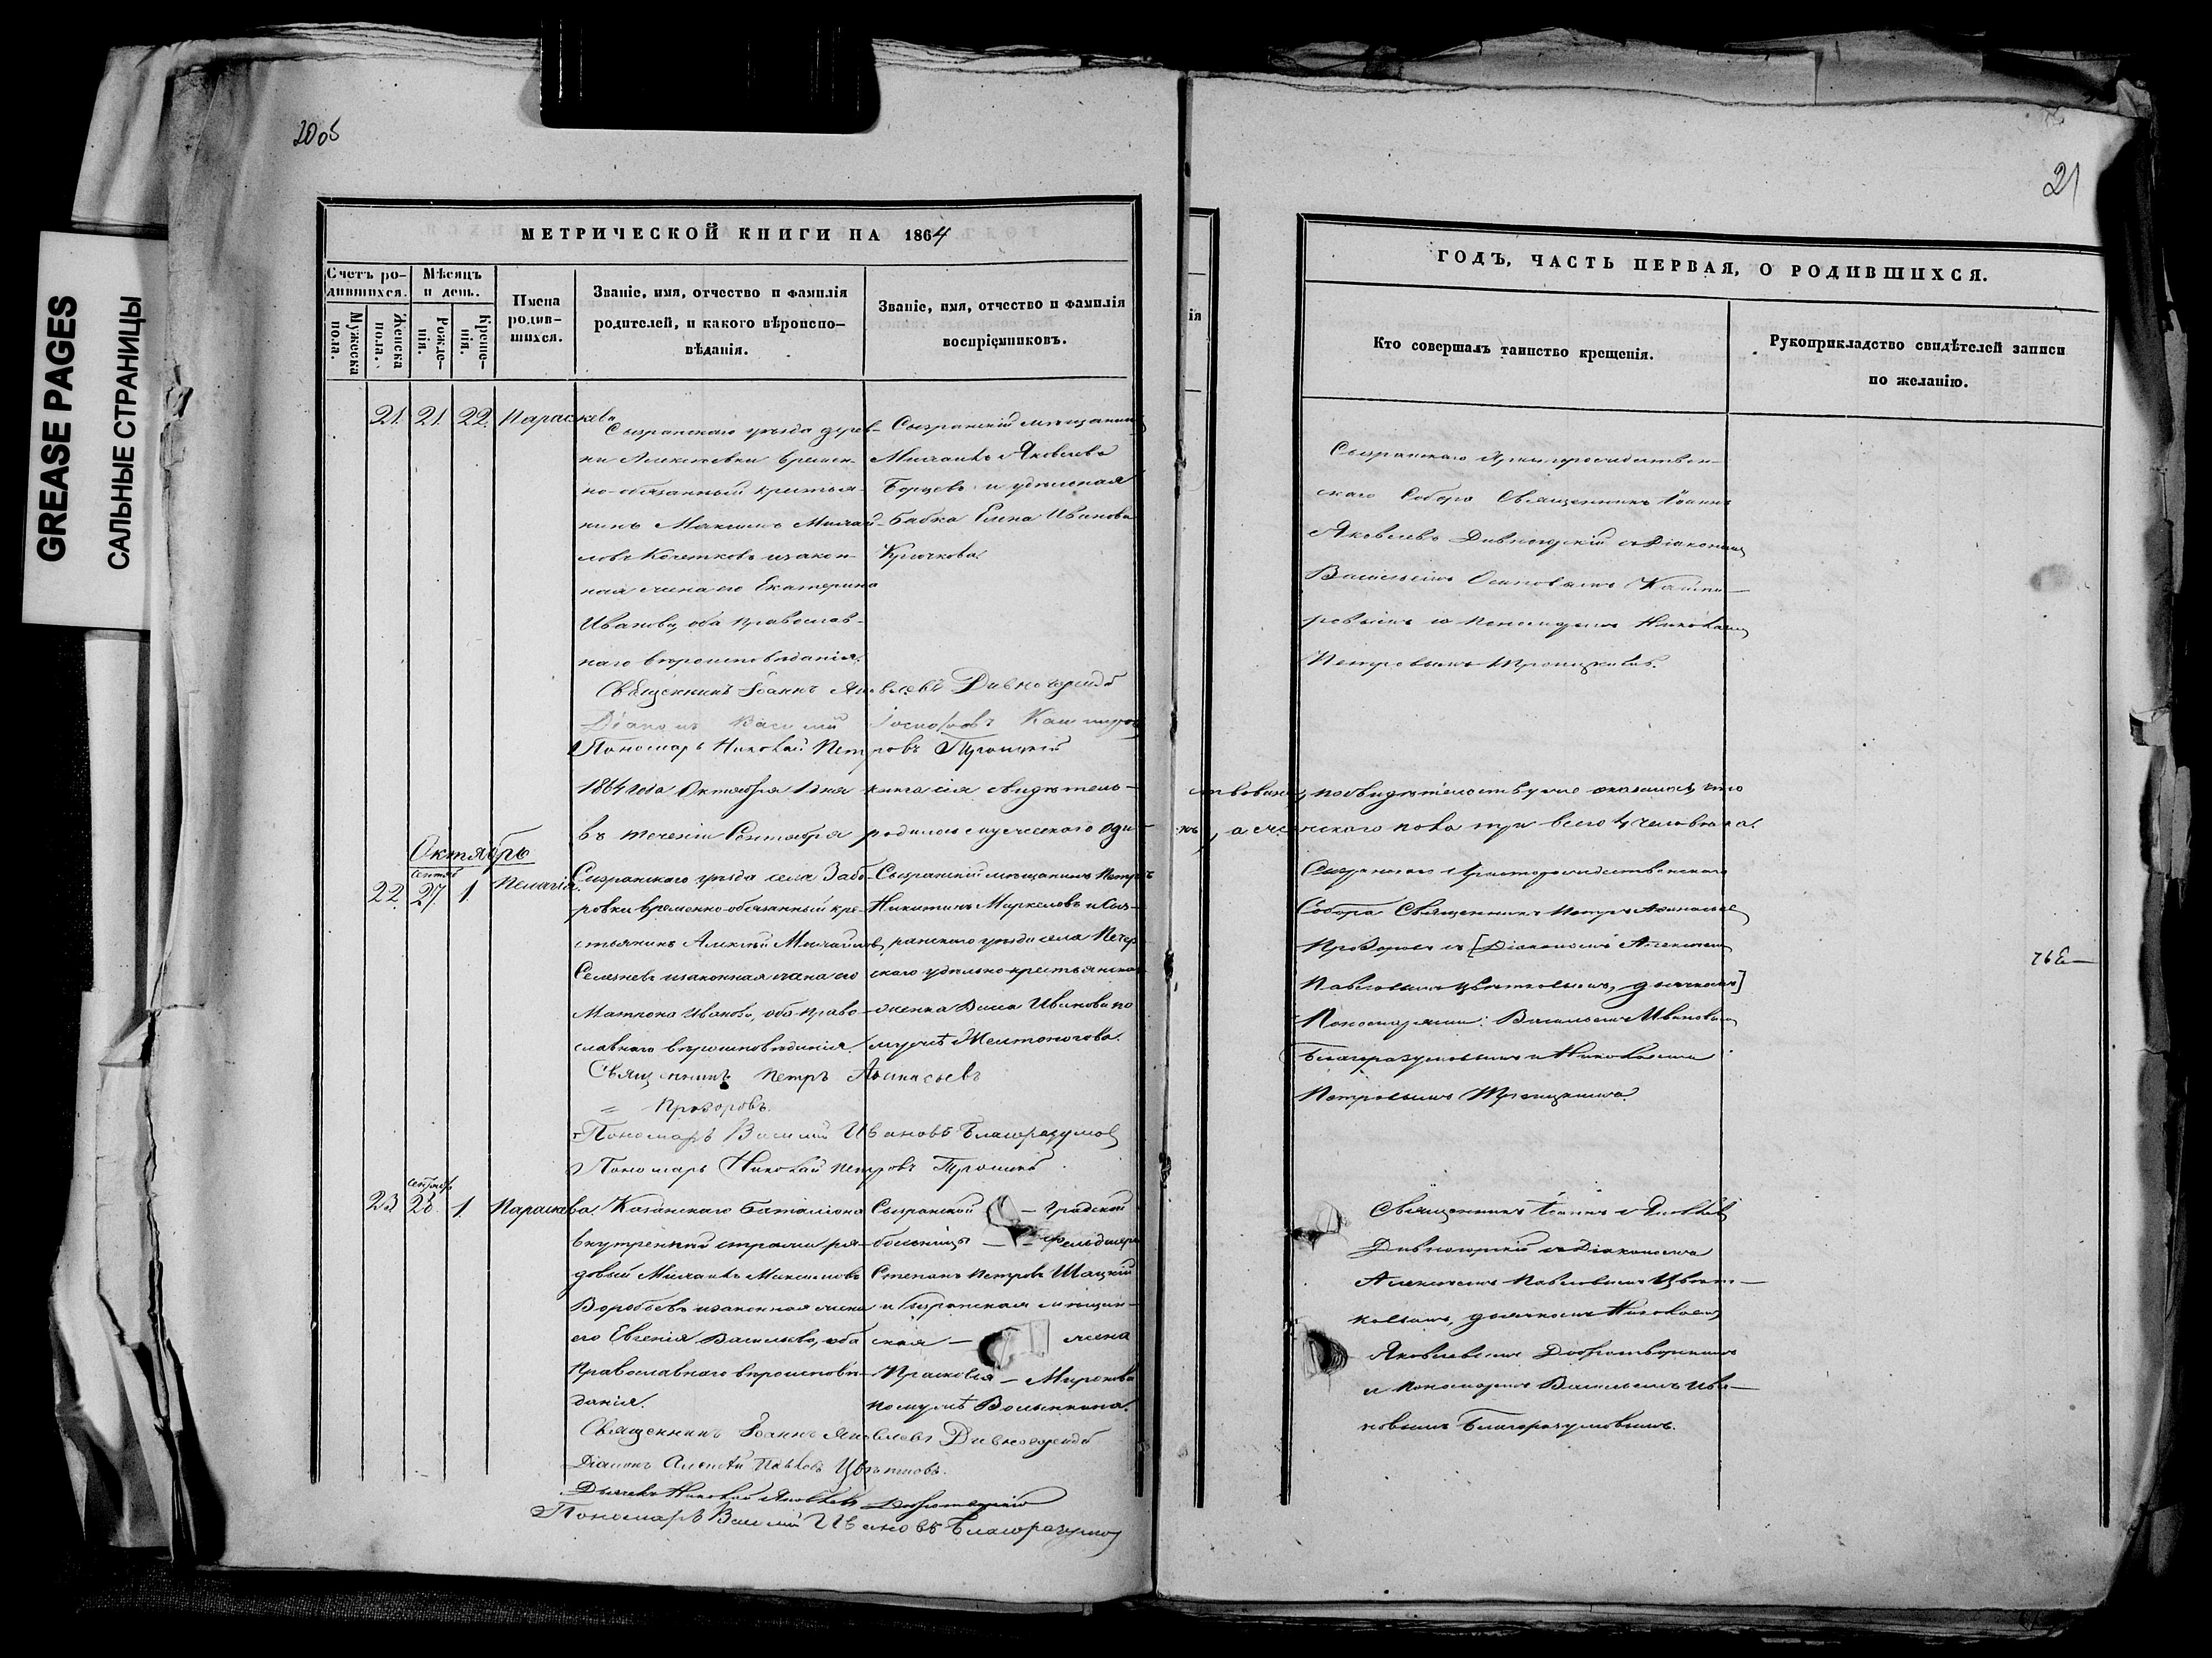 GREASE PAGES
САЛЬНЫЕ СТРАНИЦЫ
20об
МЕТРИЧЕСКОЙ КНИГИ НА 1864
Счетъ ро-
дившихся.
Мѣсяцъ
и день.
Мужеска
пола.
Женска
пола.
Рожде-
нія.
Креще-
нія.
Имена
родив-
шихся.
Званіе, имя, отчество и фамилія
родителей, и какого вѣроиспо-
вѣданія.
Званіе, имя, отчество и фамилія
воспріемниковъ.
21. 21. 22. Параскева
Сызранскаго уѣзда дерев-
ни времен-
но-обязанный крестья-
нинъ Максимъ Михай-
ловъ Кочетковъ и закон-
ная жена его Екатерина
Иванова, оба православ-
наго вѣроисповѣданія.
Сызранскій мѣщанинъ
Михаилъ Яковлевъ
Борцевъ и удѣльная
бабка Елена Иванова
Крючкова.
Священникъ Іоаннъ Яковлевъ Дивногорскій
Діаконъ Василій Іосифовъ Кашировъ
Пономарь Николай Петровъ Троицкій
1864 года Октября 1 дня книга сія свидѣтель-
въ теченіи Сентября родилось мужескаго оди-
Октябрь
Сентяб
22. 27. 1. Пелагія.
Сызранскаго уѣзда села Забо-
ровки временно-обязанный кре-
стьянинъ Алексѣй Михайловъ
Селезневъ и законная жена его
Матрона Иванова, оба право-
славнаго вѣроисповѣданія.
Сызранскій мѣщанинъ Петръ
Никитинъ Маркеловъ и Сыз-
ранскаго уѣзда села Печер-
скаго удѣльно-крестьянская
женка Васса Иванова по
мужѣ Желтоногова.
Священникъ Петръ Аѳанасьевъ
Прозоровъ.
Пономарь Василій Ивановъ Благоразумов
Пономарь Николай Петровъ Троицкій
сентябр
23 28. 1. Параскева.
Казанскаго баталіона
внутренней стражи ря-
довый Михаилъ Максимовъ
Воробьевъ и законная жена
его Евгенія Васильева, оба
Православнаго вѣроисповѣ-
данія.
Сызранской — градской
больницы — фельдшеръ
Степанъ Петровъ Шацкій
и Сызранская мѣщан-
ская — жена
Прасковья — Миронова
по мужѣ Волынкина.
Священникъ Іоаннъ Яковлевъ Дивногорскій
Діаконъ Алексѣй Павловъ Цвѣтковъ.
Дьячекъ Николай Яковлевъ Добротворскій
Пономарь Василій Ивановъ Благоразумов
ія
21
ГОДЪ, ЧАСТЬ ПЕРВАЯ, О РОДИВШИХСЯ.
Кто совершалъ таинство крещенія.
Рукоприкладство свидѣтелей записи
по желанію.
Сызранскаго Христорождествен-
скаго Собора Священникъ Іоаннъ
Яковлевъ Дивногорскій съ Діакономъ
Васильемъ Осиповымъ Каши-
ровымъ и пономаремъ Николаемъ
Петровымъ Троицкимъ.
ствована, по свидѣтельству же оказалось, что
нъ, а женскаго пола три всего 4 человѣка.
Сызранскаго Христорождественскаго
Собора Священникъ Петръ Аѳанасьев
Прозоровъ съ [Діакономъ Алексѣемъ
Павловымъ Цвѣтковымъ, дьячкомъ]
Пономарями: Васильемъ Ивановымъ
Благоразумовымъ и Николаемъ
Петровымъ Троицкимъ.
Священникъ Іоаннъ Яковлев
Дивногорскій съ Діакономъ
Алексѣемъ Павловымъ Цвѣт-
ковымъ, дьячкомъ Николаемъ
Яковлевымъ Добротворскимъ
и пономаремъ Васильемъ Ива-
новымъ Благоразумовымъ.